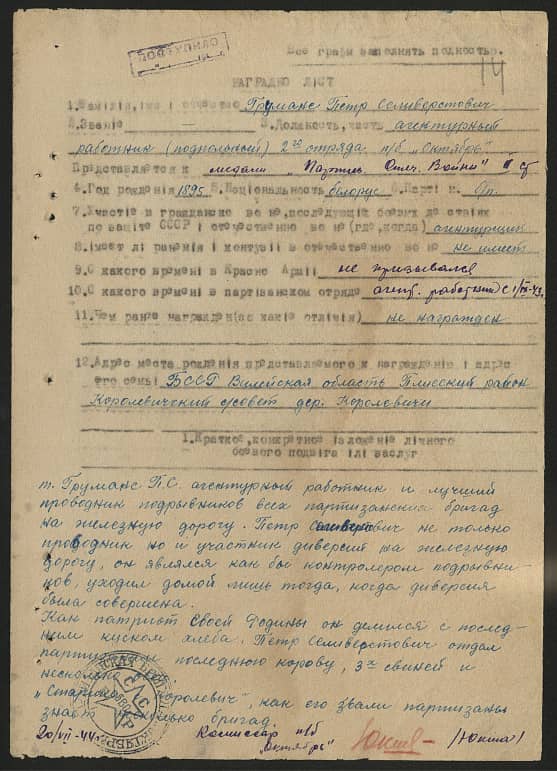 Все графы заполнять полностью.
14
НАГРАДНО ЛІСТ
1. Фаміліія, імя і отчество Груманс Петр Селиверстович
2. Званіе — 3. Должность, часть агентурный
работник (подпольный) 2го отряда п/б „Октябрь"
Представляется к медали „Партиз. Отеч. Войны" II ст
4. Год рожденія 1895 5. Національность білорус 6. Партi н.
7. Участіе в гражданско во не, последующіх боевых де ствіях
по защіте СССР і отечественно во не (где, когда) агентурщик
8. Імеет лі раненія і контузіі в отечественно во не не имеет
9. С какого времені в Красно Арміі не призывался
10. С какого времені в партізанском отряде агент. работник с 1/III-43.
11. Чем ранее награжден (за какіе отлічія) не награжден
12. Адрес места рожденія представляемого к награжденію і адрес
его семьі БССР Вилейская область Плисский район
Королевичский с/совет дер. Королевичи
1. Краткое, конкретное ізложеніе лічного
боевого подвіга ілі заслуг
т. Груманс П.С. агентурный работник и лучший
проводник подрывников всех партизанских бригад
на железную дорогу. Петр Селиверстович не только
проводник но и участник диверсий на железную
дорогу, он являлся как бы контролером подрывни-
ков, уходил домой лишь тогда, когда диверсия
была совершена.
Как патриот своей Родины он делился с послед-
ним куском хлеба. Петр Селиверстович отдал
партизанам последнюю корову, 3х свиней и
несколько
Королевич", как его звали партизаны
знает сколько бригад.
20/VII-44 Комиссар п/б
„Октябрь" /Юкша/